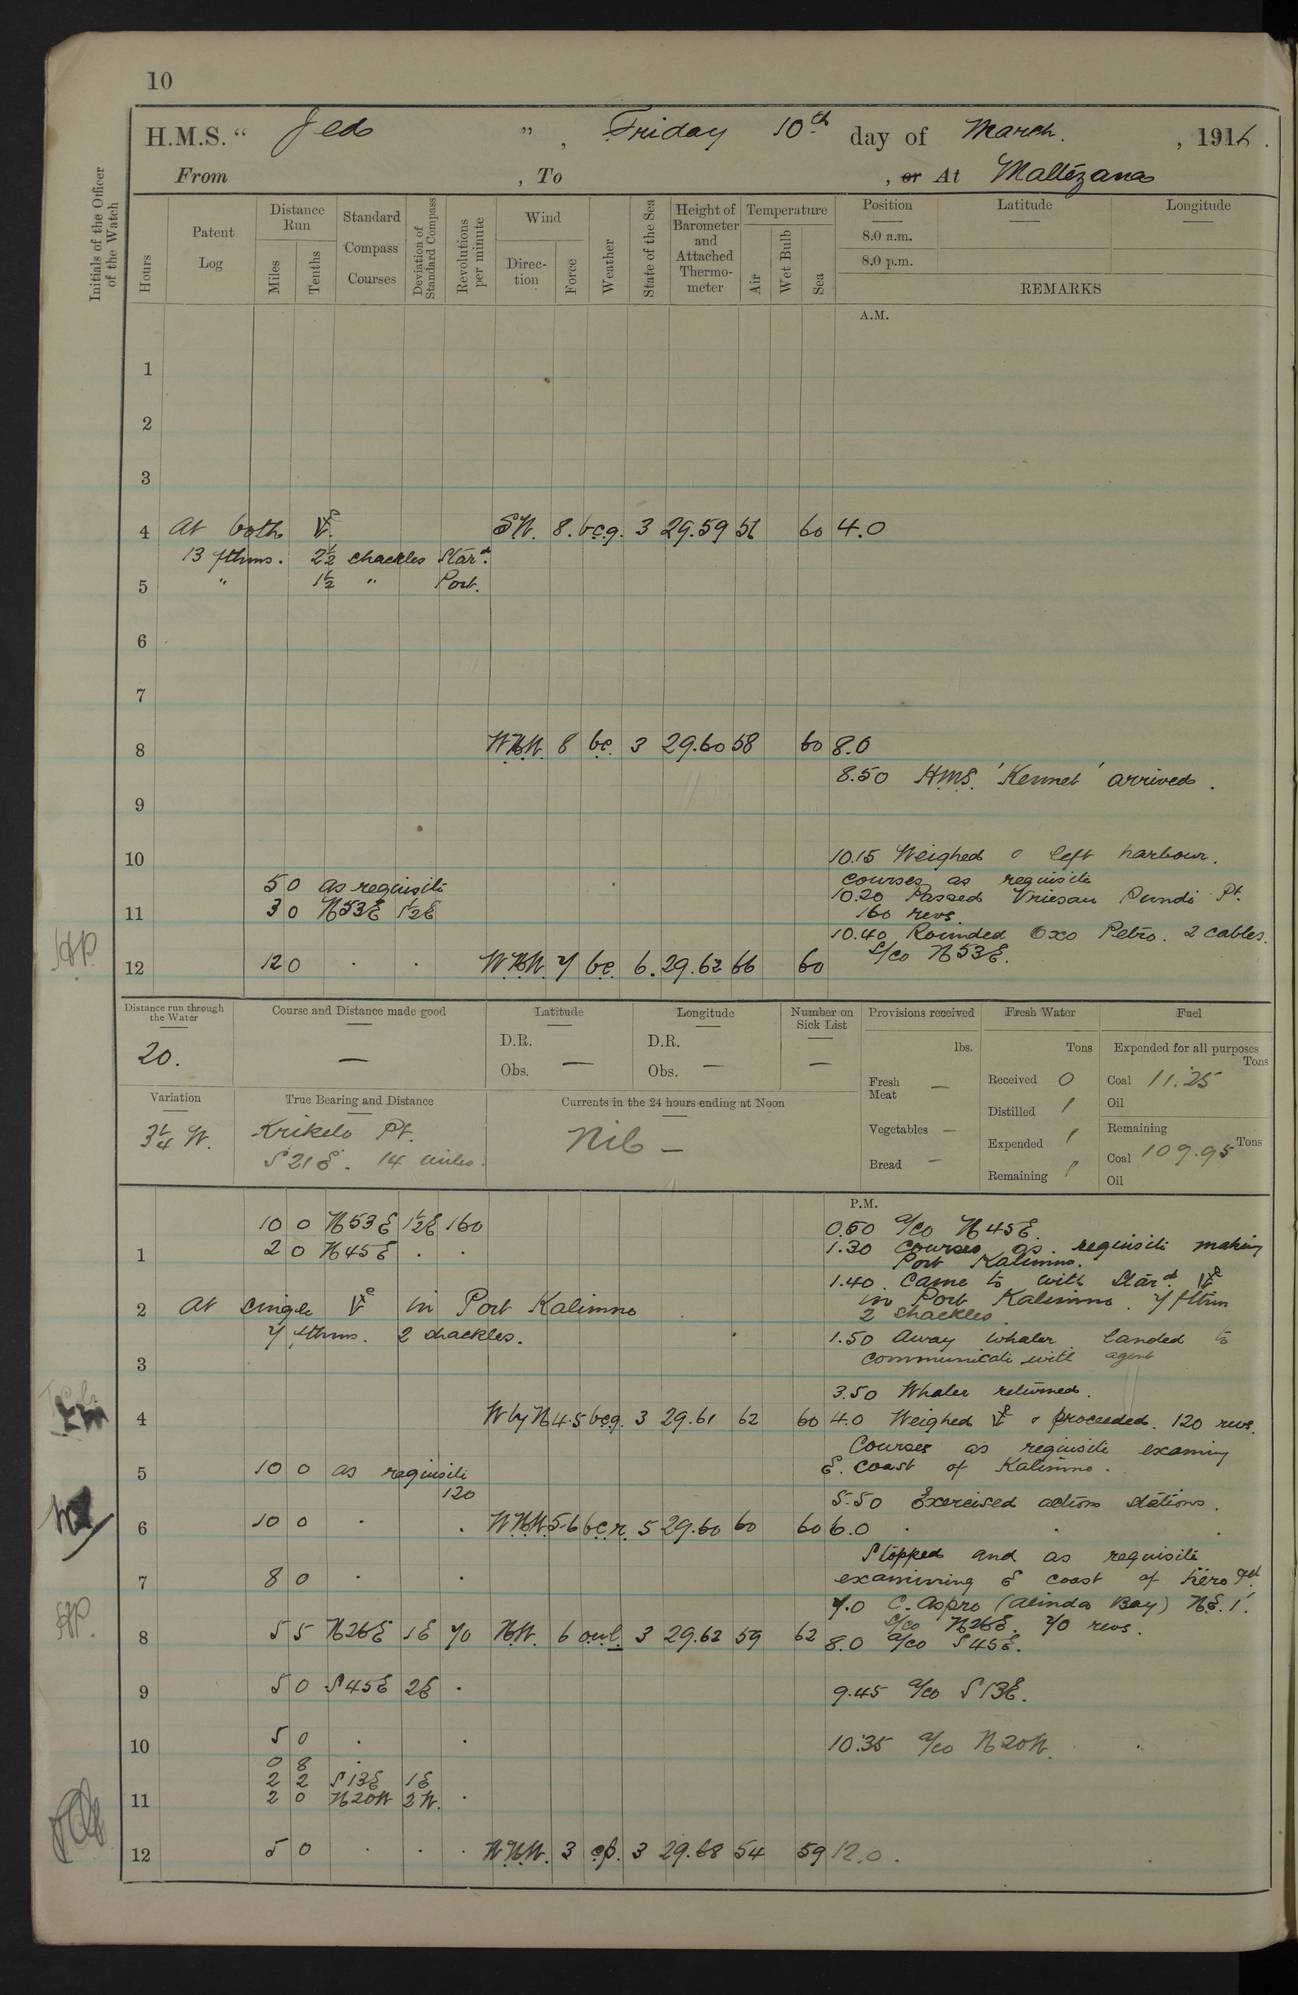 10
H.M.S. “ Jed ” , Friday 10th day of March. , 1916.
From , To , or At Maltezana
Initials of the Officer of the Watch
Hours
Patent Log
Distance Run
Miles
Tenths
Standard Compass Courses
Deviation of Standard Compass
Revolutions per minute
Wind
Direction
Force
Weather
State of the Sea
Height of Barometer and Attached Thermometer
Temperature
Air
Wet Bulb
Sea
Position
8.0 a.m.
8.0 p.m.
Latitude
Longitude
REMARKS
A.M.
1
2
3
4 At both SW. 8. bcg. 3 29.59 56 60 4.0
13 fthms. 2½ shackles Stard.
5 " 1½ " Port.
6
7
8 WNW. 8 bc. 3 29.60 58 60 8.0
8.50 H.M.S. 'Kennet' arrived.
9
10 10.15 Weighed & left harbour.
courses as requisite
5 0 as requisite
10.20 Passed Pundi Pt.
11 3 0 N53E 1½E 160 revs.
10.40 Rounded Oxo Petro. 2 cables.
S/co N53E.
12 12 0 . . WNW. 7 bc. 6. 29.62 66 60
Distance run through the Water
20.
Course and Distance made good
—
Latitude
D.R.
Obs. —
Longitude
D.R.
Obs. —
Number on Sick List
—
Provisions received
lbs.
Fresh Meat —
Vegetables —
Bread —
Fresh Water
Tons
Received 0
Distilled /
Expended /
Remaining /
Fuel
Expended for all purposes
Tons
Coal 11.25
Oil
Remaining
Tons
Coal 109.95
Oil
Variation
3¼ W.
True Bearing and Distance
Krikelo Pt.
S21E. 14 miles.
Currents in the 24 hours ending at Noon
Nil —
P.M.
10 0 N53E 1½E 160 0.50 a/co N45E.
1 2 0 N45E . . 1.30 Courses as requisite making
Port Kalimno.
1.40 Came to with Stard.
2 At single in Port Kalimno in Port Kalimno. 7 fthm
2 shackles.
7 fthms. 2 shackles. 1.50 Away whaler landed to
3 communicate with agent
3.50 Whaler returned.
4 W by N 4.5 bcg. 3 29.61 62 60 4.0 Weighed & proceeded. 120 revs.
Courses as requisite examing
5 10 0 as requisite E. coast of Kalimno.
120
5.50 Exercised action stations.
6 10 0 . . WNW. 5-6 bcr. 5 29.60 60 60 6.0 . . .
Stopped and as requisite
7 8 0 . . examining E coast of
7.0 C. Aspro (Alinda Bay) N.E. 1'.
S/co N26E. 70 revs.
8 5 5 N26E 1E 70 NW. 6 3 29.62 59 62 8.0 a/co S45E.
9 5 0 S45E 2E . 9.45 a/co S13E.
10 5 0 . . 10.35 a/co N20W.
0 8 .
2 2 S13E 1E
11 2 0 N20W 2W. .
12 5 0 . . . NNW. 3 cp. 3 29.68 54 59 12.0.